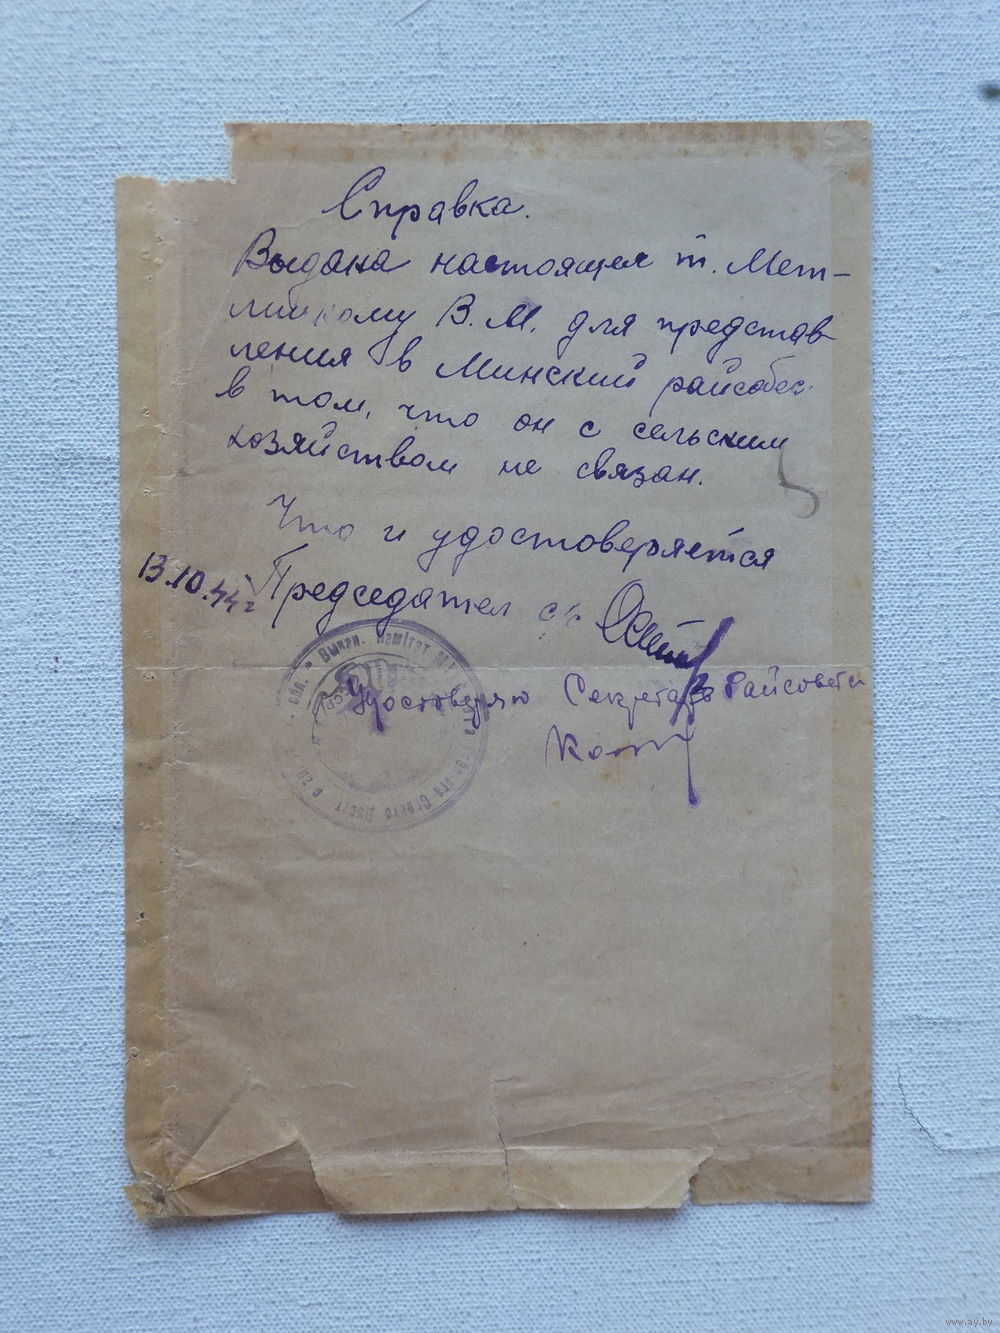 Справка.
Выдана настоящая т. Мет-
лицкому В. М. для представ
ления в Минский райсобес
в том, что он с сельским
хозяйством не связан.
Что и удостоверяется
13.10.44 г Председател с/с
Удостоверяю Секретарь Райсовета
Выкан. Камітэт
www.ay.by